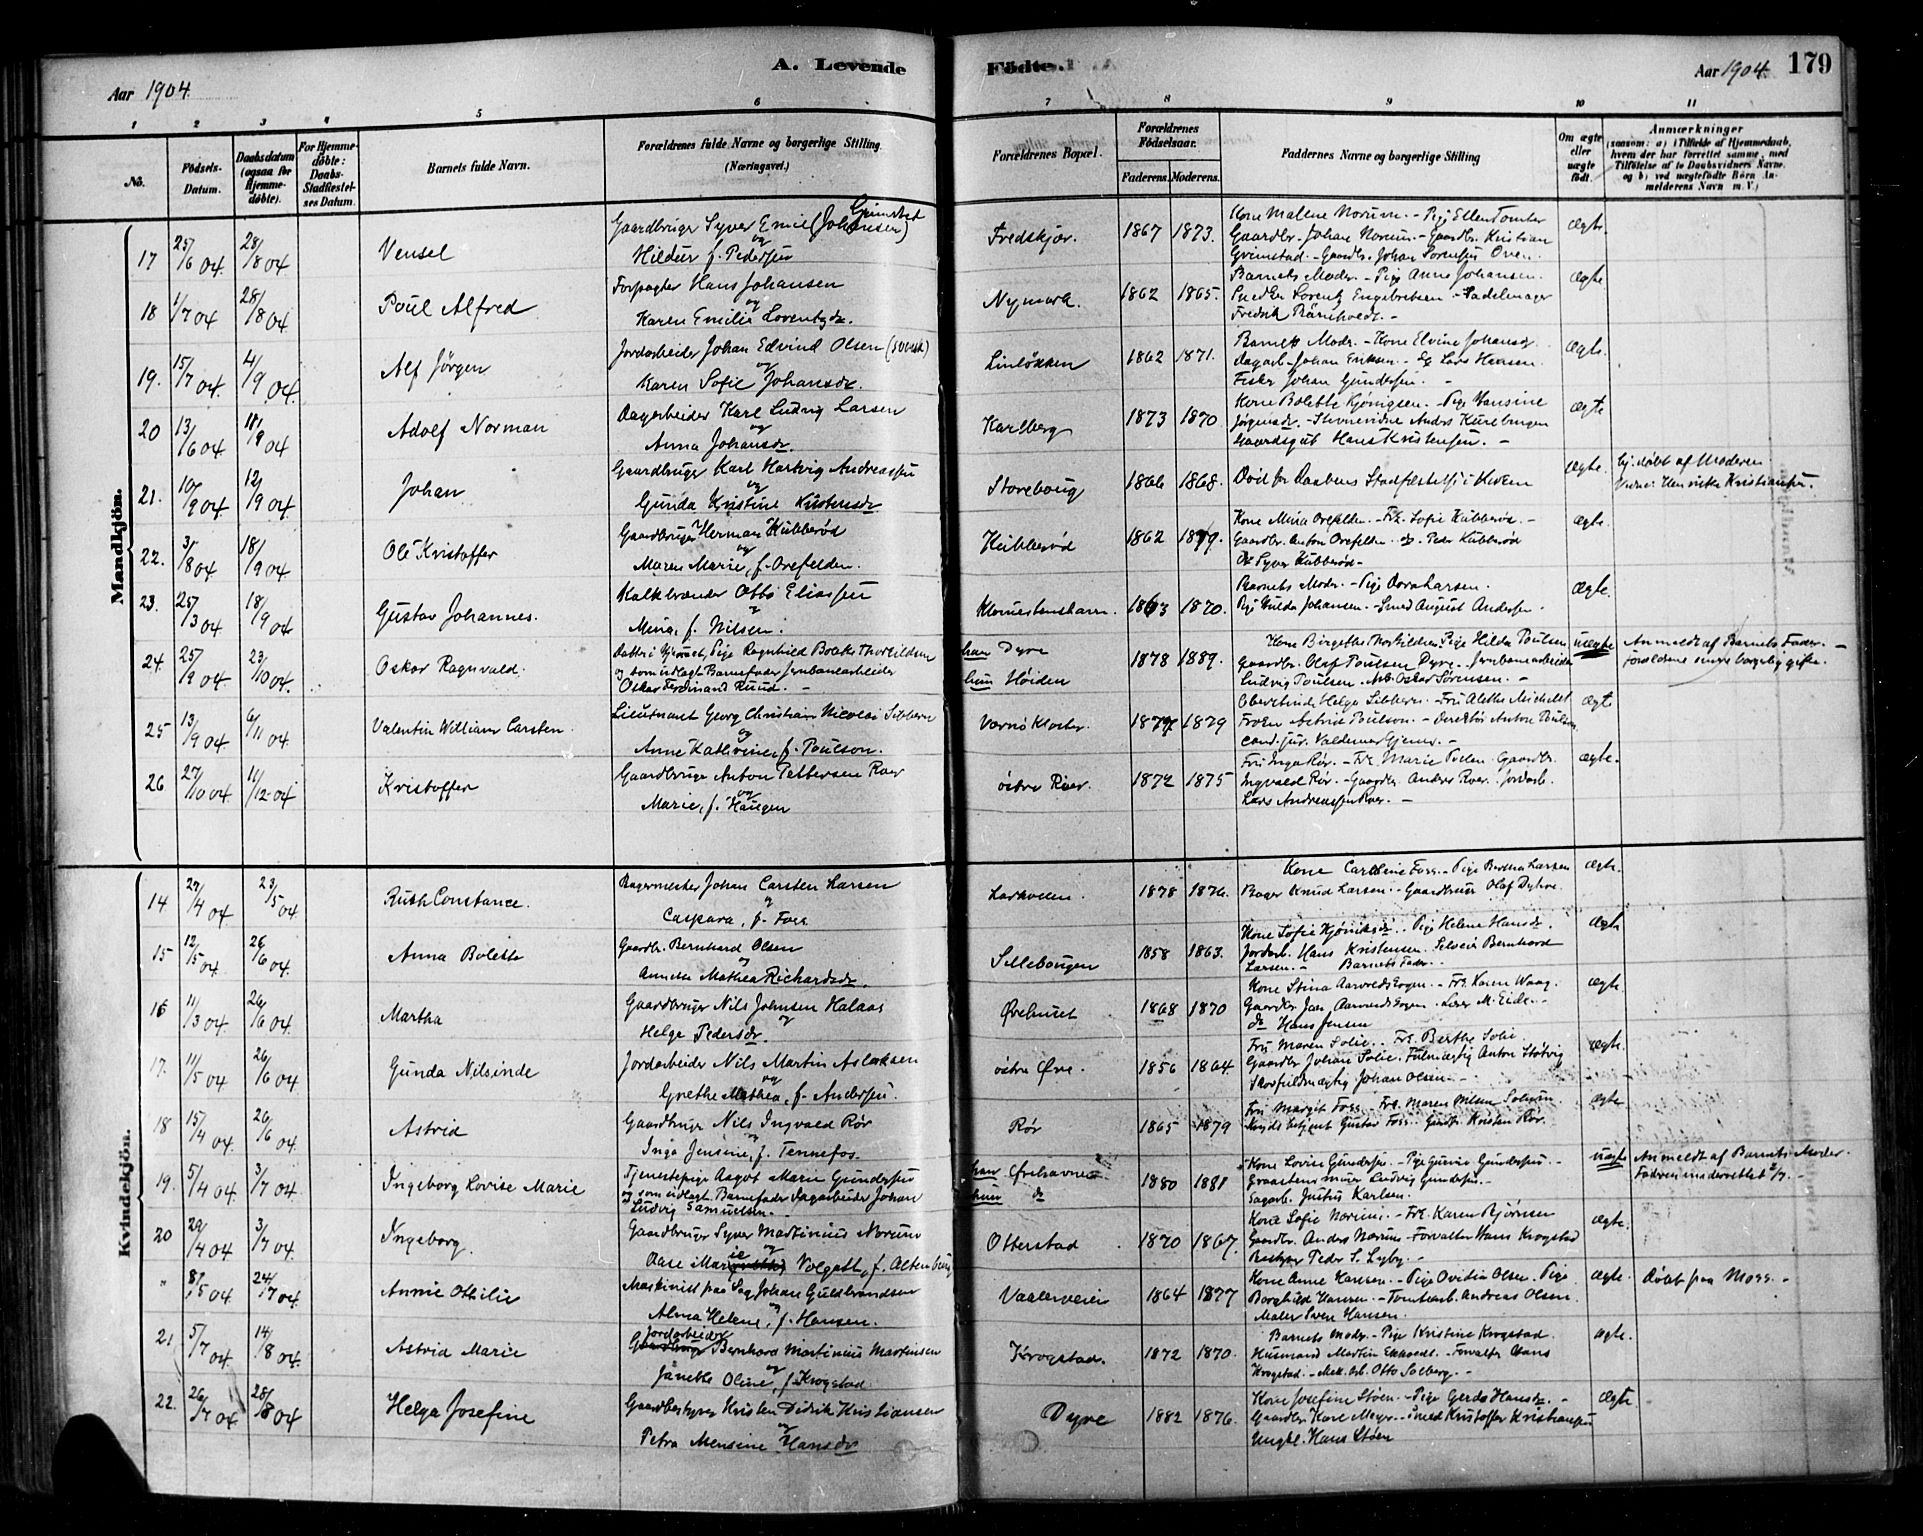 A. Levende Födte.
179
Aar 1904.
Aar 1904.
1 2 3 4 5 6 7 8 9 10 11
No.
Födsels-Datum.
Daabsdatum (ogsaa for Hjemmedöbte).
For Hjemmedöbte: Daabs-Stadfæstelses Datum.
Barnets fulde Navn.
Forældrenes fulde Navne og borgerlige Stilling (Næringsvei.)
Forældrenes Bopæl.
Forældrenes Födselsaar.
Faderens. Moderens.
Faddernes Navne og borgerlige Stilling
Om ægte eller uægte födt.
Anmærkninger
(saasom: a) i Tilfælde af Hjemmedaab, hvem der har forrettet samme, med Tilföielse af to Daabsvidners Navne, og b) ved uægtefödte Börn Anmelderens Navn m. V.)
Mandkjön.
17 25/6 04 28/8 04 Vensel
Gaardbruger Syver Emil (Johansen) Grimstad
og
Hildur f. Pedersen
Fredskjær. 1867 1873.
Kone Malene Norum. - Pige Ellen Tomter
Gaardbr. Johan Norum - Gaardbr. Kristian
Grimstad - Gaardbr. Johan Sørensen Oven.
Ægte
18 1/7 04 28/8 04 Poul Alfred
Forpagter Hans Johansen
og
Karen Emilie Lorentzdr.
Nymark. 1862 1865.
Barnets Moder - Pige Anne Johansen.
Snedker Lorentz Engebretsen - Sadelmager
Fredrik
Ægte
19. 15/7 04. 4/9 04. Alf Jörgen
Jordarbeider Johan Edvind Olsen (svensk)
og
Karen Sofie Johansdr.
Linløkken 1862 1871.
Barnets Moder - Kone Elvine Johansdr.
Dagarb. Johan Eriksen - Lars Hansen.
Fisker Johan Gundersen. -
Ægte.
20 13/6 04 11/9 04 Adolf Norman
Dagarbeider Karl Ludvig Larsen
og
Anna Johansdr.
Karlberg 1873 1870
Kone Bolette Kjönigsen - Pige Hansine
Gaardsgut Hans Kristensen. -
Ægte
21. 10/9 04 12/9 04 Johan
Gaardbruger Karl Hartvig Andreassen
og
Gunda Kristine
1866 1868.
Død før Daabens Stadfæstelse i Kirken
Ægte. Hj. døbt af Moderen
Vidne: Henrikke Kristiansen.
22. 3/8 04 18/9 04 Ole Kristoffer
Gaardbruger Herman Kubberød
og
Maren Marie, f. Orefelden.
Kubberød 1862 1879.
Kone Mina Orefelden. - Frk. Sofie Kubberød. -
Gaardbr. Anton Orefelden - do Peder Kubberød
do Syver Kubberød -
Ægte.
23. 25/3 04 18/9 04 Gustav Johannes.
Kalkbrænder Otto Eliassen
og
Mina, f. Nilsen.
1863 1870.
Barnets Moder. - Pige Dora Larsen.
Pige Hulda Johansen - Smed August Andersen -
Ægte.
24. 25/9 04 23/10 04. Oskar Ragnvald.
Datter i Hjemmet, Pige Ragnhild Bolette Thorkildsen
og som udlagt Barnefader Jernbanearbeider
Oskar Ferdinand Ruud. -
han Dyre
hun Høiden
1878 1889.
Kone Birgethe Thorkildsen, Pige Hilda Poulsen
Gaardbr. Olaf Poulsen Dyre - Jernbanearbeider
Ludvig Poulsen. Arb. Oskar Sørensen.
uægte Anmeldt af Barnets Fader. -
forældrene senere borgerlig gifte.
25 13/9 04 6/11 04. Valentin William Carsten.
Lieutnant Georg Christian Nicolai Sibbern
og
Anne Kathrine, f. Poulson.
Værne Kloster. 1877 1879
Oberstinde Helga Sibbern - Fru Alethe Michelet
Frøken Astrid Poulson - Direktør Anton Poulson
cand. jur. Valdemar Gjems. -
ægte
26 27/10 04 11/12 04 Kristoffer
Gaardbruger Anton Pettersen Roer
og
Marie, f. Haugen
østre Roer. 1872 1875
Fru Inga Rør. - Frk. Marie - Gaardbr.
Ingvald Rør. - Gaardbr. Anders Roer. Jordarb.
Lars Andreassen Roer. -
Ægte.
Kvindekjön.
14 27/4 04 23/5 04. Ruth Constance.
Bagermester Johan Carsten Larsen
og
Caspara, f. Foss
Larkollen. 1878 1876.
Kone Caroline Foss - Pige Berthea Larsen
Bager Knud Larsen. - Gaardbruger Olaf Dyhre.
Ægte.
15 12/5 04. 26/6 04. Anna Bolette
Gaardbr. Bernhard Olsen
og
Annette Mathea Richardsdr.
Sillebougen 1858 1863.
Kone Sofie Kjöniksdr. . Pige Helene Hansdr.
Jordarb. Hans Kristensen. Selveier Bernhard
Larsen. - Barnets Fader.
Ægte
16 11/3 04 26/6 04. Martha
Gaardbruger Nils Johnsen Halaas
og
Helge Pedersdr.
Ørehuset 1868 1870
Kone Stina Aarvoldskogen. - Frk. Karen Waag.
Gaardbr. Jan Aarvoldskogen. Lærer M. Eide. -
do Hans Jensen
Ægte.
17. 11/5 04 26/6 04 Gunda Nilsinde
Jordarbeider Nils Martin Aslaksen
og
Grethe Mathea, f. Andersen.
østre Øre. 1856 1864.
Fru Maren Solie. . Frk. Berthe Solie.
Gaardbr. Johan Solie. Fuldmægtig Anton Støtvig
Skovfuldmægtig Johan Olsen. -
ægte.
18 15/4 04. 26/6 04. Astrid
Gaardbruger Nils Ingvald Rør
og
Inga Jensine, f. Tennefos.
Rør 1865 1879
Fru Margit Foss - Frk. Maren
Gustav Foss. Gaardbr. Kristian Rør.
Ægte
19. 5/4 04 3/7 04. Ingeborg Lovise Marie
Tjenestepige Aagot Marie Gundersen
og som udlagt Barnefader Dagarbeider Johan
Ludvig Samuelsen. -
han Ørehavnen
hun do
1880 1881
Kone Lovise Gundersen - Pige Gunda Gundersen. -
Graastensmurer Ludvig Gundersen. -
Dagarb. Justus Karlsen.
uægte Anmeldt af Barnets Moder.
Faderen underrettet 2/7. -
20 29/4 04. 3/7 04. Ingeborg.
Gaardbruger Syver Martinius Norum
og
Aase Marie Volgatt, f. Altenburg
Otterstad . 1870 1867.
Kone Sofie Norum. - Frk. Karen Bjørnsen
Gaardbr. Anders Norum - Forvalter Hans Krogstad
Bestyrer Peder S. Lyby. -
Ægte.
" 8/5 04. 24/7 04. Annie Othilie
Maskinist paa Sag Johan Guldbrandsen
og
Alma Helene, f. Hansen.
Vaalerveien 1864 1877
Kone Anne Hansen. - Pige Ovidia Olsen. Pige
Borghild Hansen. - Tomtearb. Andreas Olsen.
Maler Sven Hansen.
Ægte. Døbt paa Moss. -
21 5/7 04. 14/8 04. Astrid Marie
Jordarbeider
Gaardbruger Bernhard Martinius Martinsen
og
Janette Oline, f. Krogstad.
Krogstad. 1872 1870.
Barnets Moder - Pige Kristine Krogstad.
Husmand Martin Ekholdt. - Forvalter Hans
Krogstad. - Mek. arb. Otto Solberg. -
ægte.
22. 26/7 04 28/8 04 Helga Josefine
Gaardbestyrer Kristen Didrik Kristiansen
og
Petra Mensine Hansdr.
Dyre 1882 1876.
Kone Josefine Støen. - Pige Gerda Hansdr. -
Gaardbr. Kare Meyer - Smed Kristoffer Kristiansen
Ungkl. Hans Støen
Ægte.